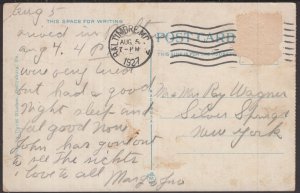 Aug 5
THIS SPACE FOR WRITING
POST CARD
BALTIMORE, MD.
AUG 5
7-PM
1927
arrived in
Aug 4. 4 P
was very tired
but had a good
night sleep and
feel good now
John has gone out
to see the sights
love to all
Marg & Jno
Mr & Mrs Ray Wagner
Silver Springs
New York